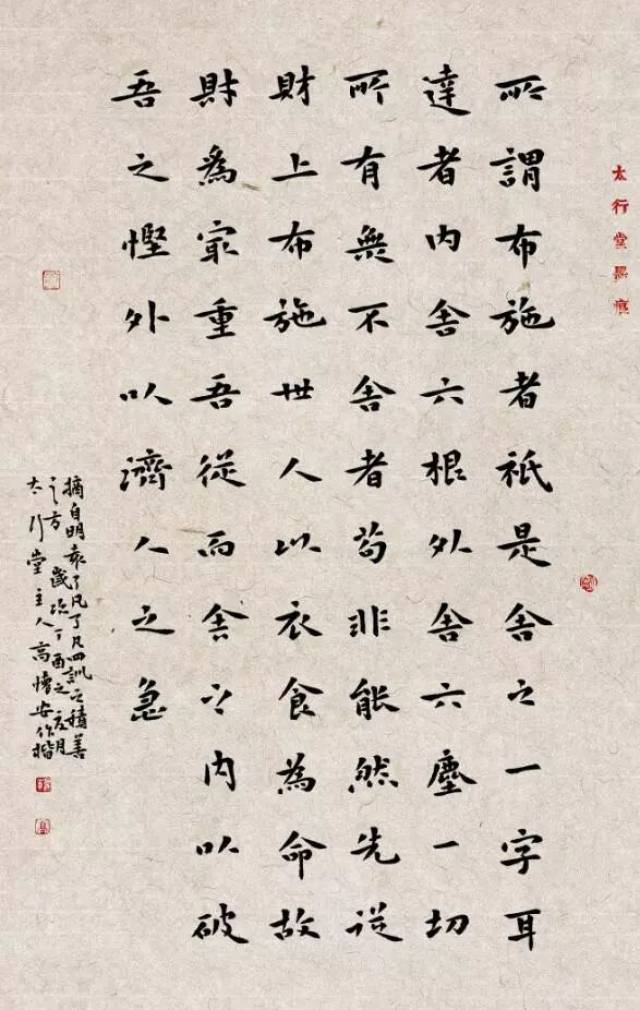 太行堂墨
所謂布施者祇是舍之一字耳
達者内舍六根外舍六塵一切
所有無不舍者苟非能然先從
財上布施世人以衣食為命故
財爲冣重吾從而舍之内以破
吾之慳外以濟人之急
摘自明袁了凡了凡四訓之積善
之方 歲次丁酉之夏月
太行堂主人高懷安作楷